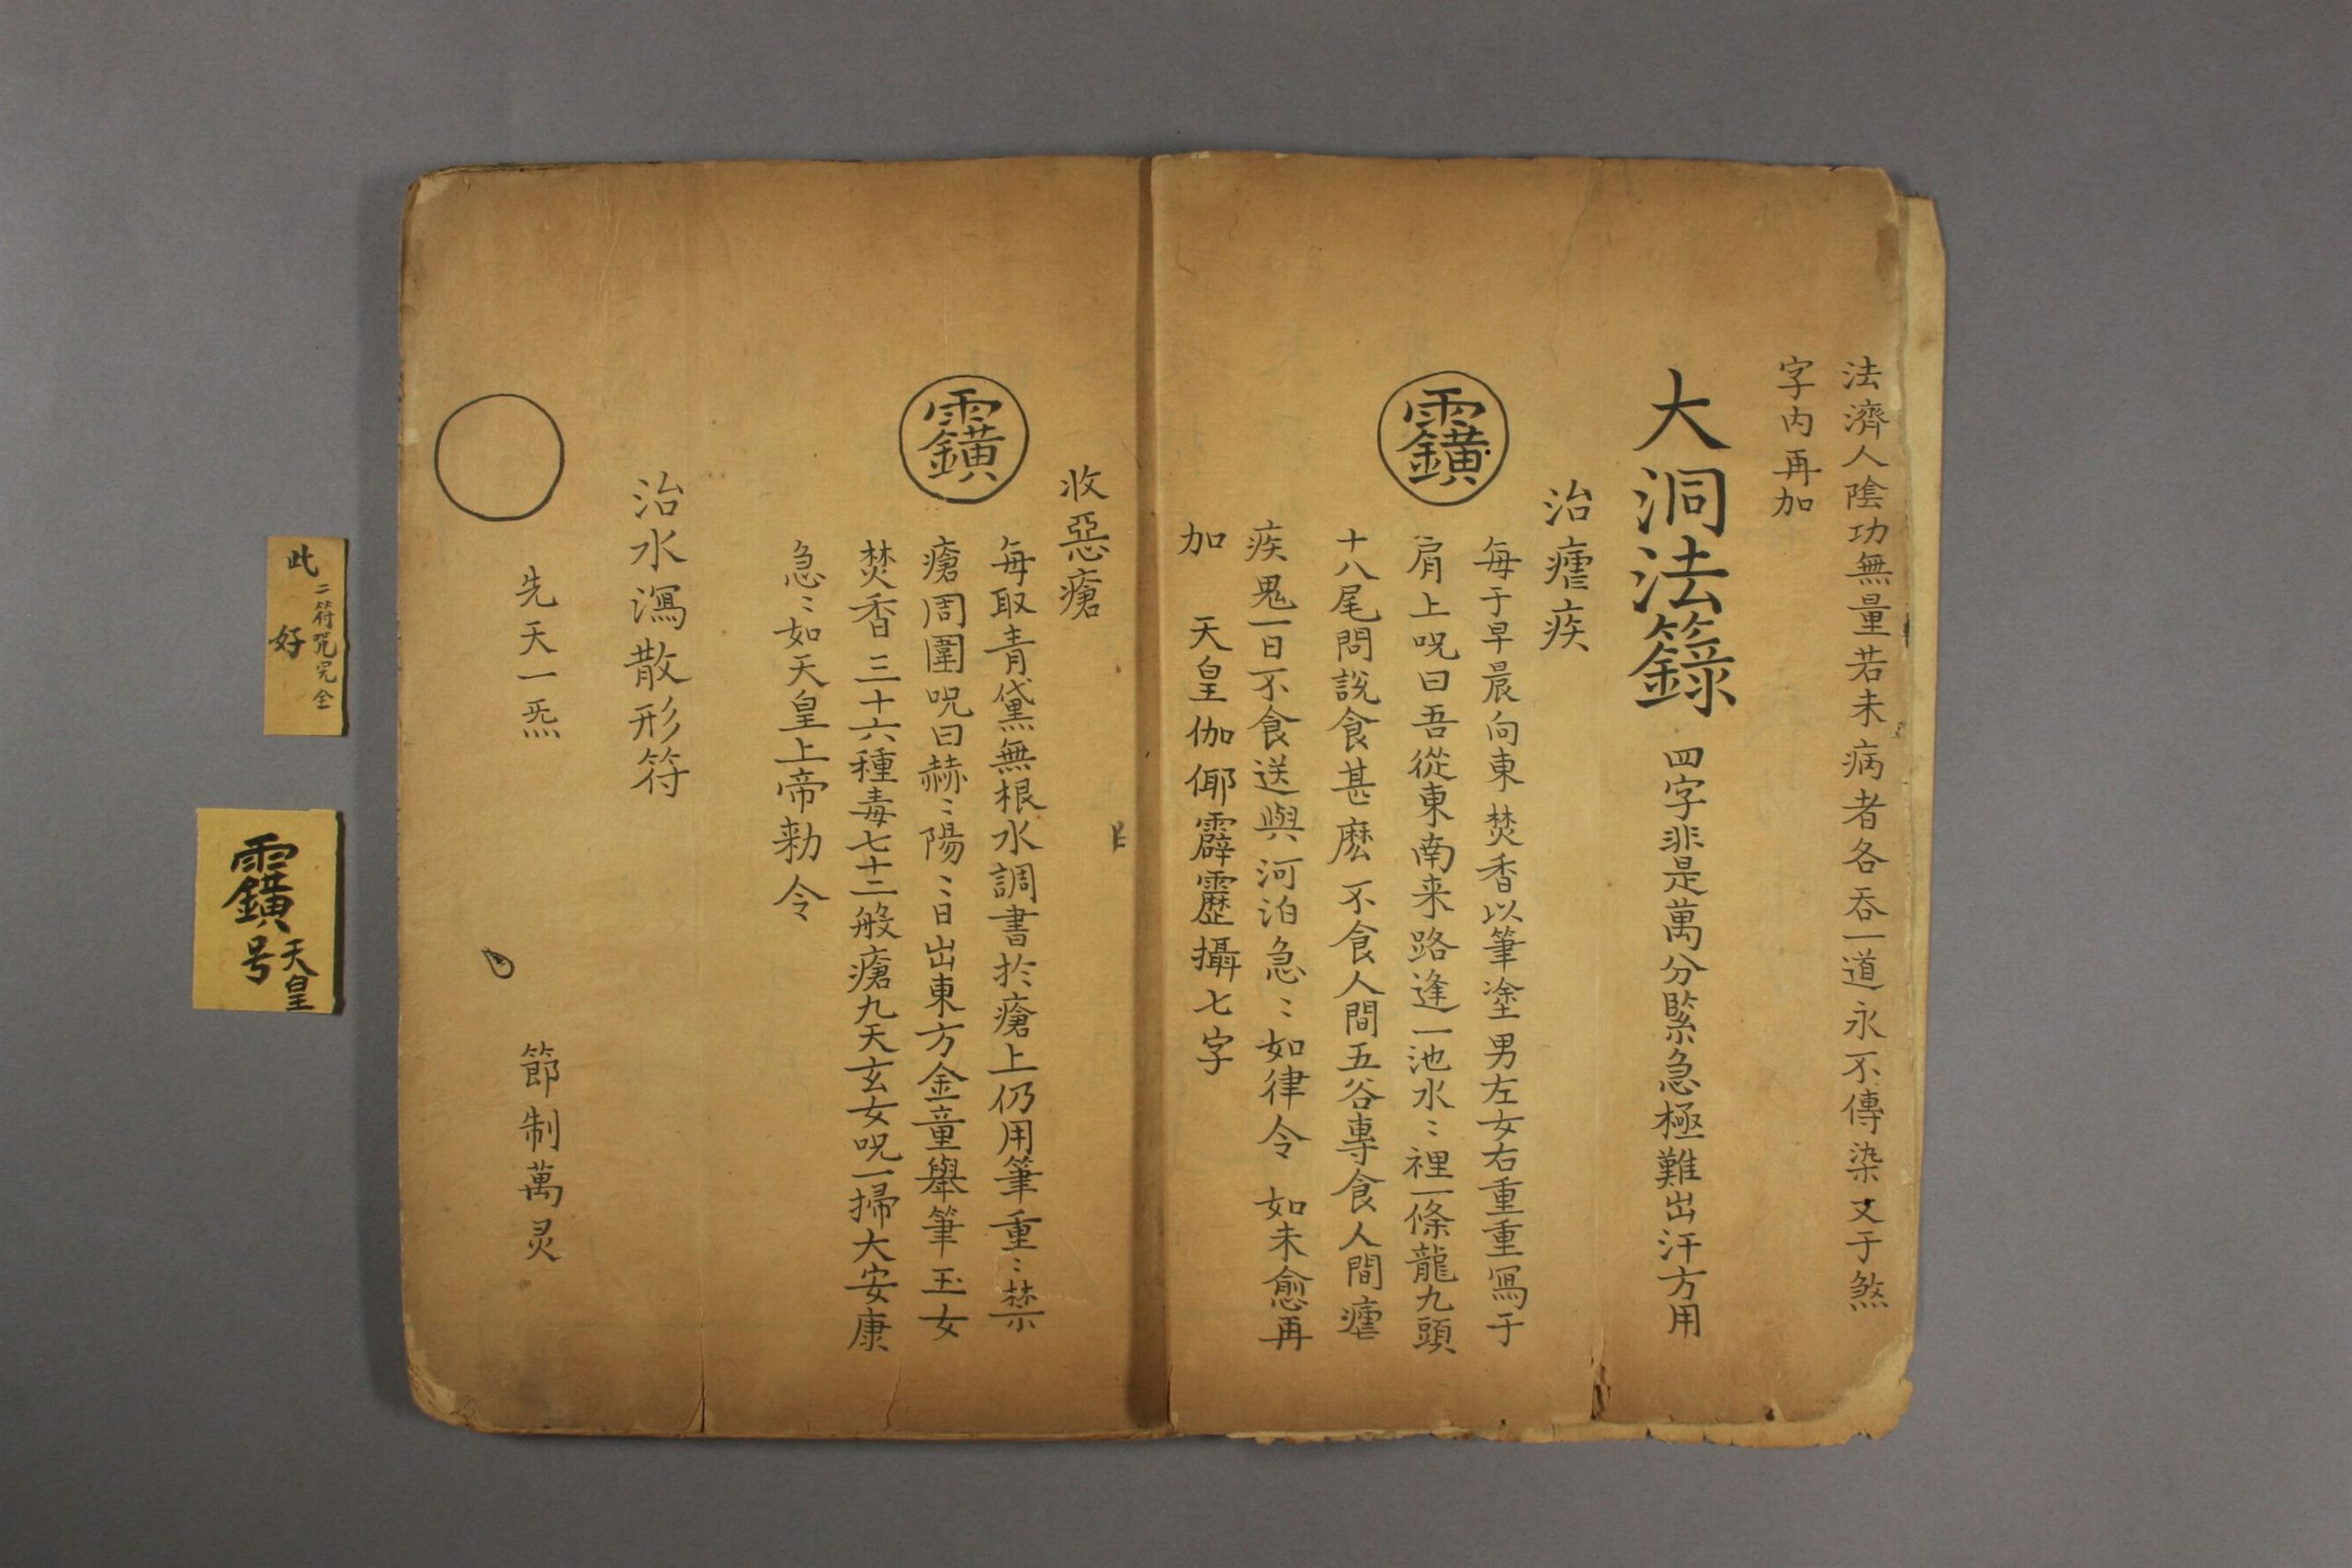 法濟人隂功無量若未病者各吞一道永不傳染又于煞
字内再加
大洞法籙 四字非是萬分緊急極難出汗方用
治瘧疾
每于早晨向東焚香以筆塗男左女右重重寫于
肩上呪曰吾從東南来路逢一池水〻裡一條龍九頭
十八尾問說食甚麽不食人間五谷專食人間瘧
疾鬼一日不食送與河泊急〻如律令 如未愈再
加 天皇伽倻霹靂攝七字
收惡瘡
每取青黛無根水調書於瘡上仍用筆重〻禁
瘡周圍呪曰赫〻陽〻日出東方金童舉筆玉女
焚香三十六種毒七十二般瘡九天玄女呪一掃大安康
急〻如天皇上帝勅令
治水瀉散形符
先天一炁 節制萬灵
此二符咒完全
好
天皇
号